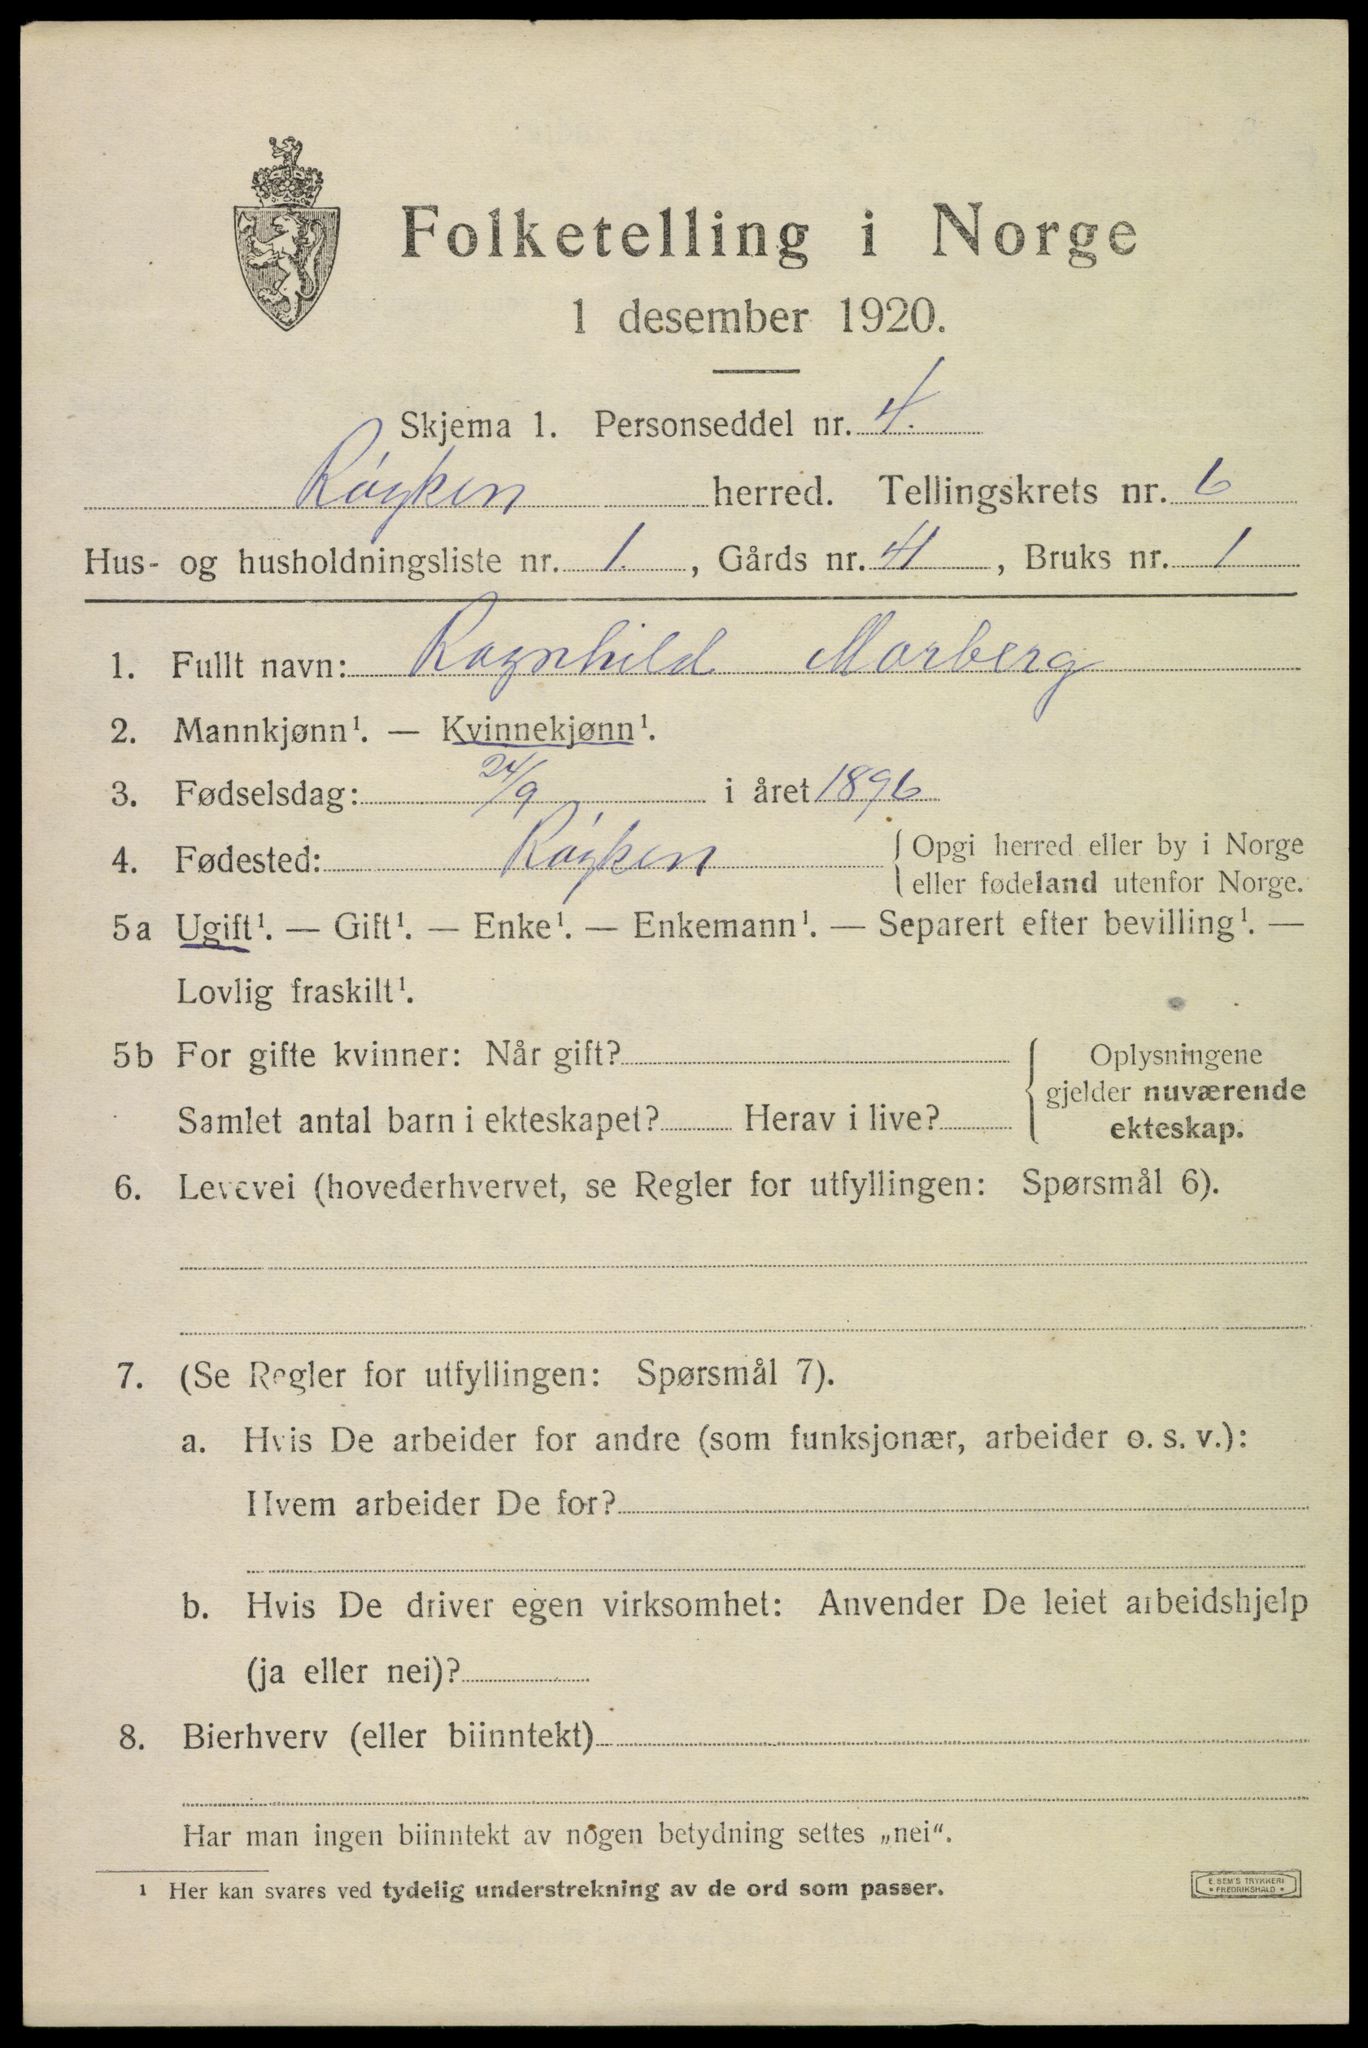 Folketelling i Norge
1 desember 1920.
Skjema 1. Personseddel nr. 4.
Røyken herred. Tellingskrets nr. 6
Hus- og husholdningsliste nr. 1. , Gårds nr. 41 , Bruks nr. 1
1. Fullt navn: Ragnhild Morberg
2. Mannkjønn¹. — Kvinnekjønn¹.
3. Fødselsdag: 24/9 i året 1896
4. Fødested: Røyken { Opgi herred eller by i Norge
eller fødeland utenfor Norge.
5a Ugift¹. — Gift¹. — Enke¹. — Enkemann¹. — Separert efter bevilling¹. —
Lovlig fraskilt¹.
5b For gifte kvinner: Når gift?
Samlet antal barn i ekteskapet? Herav i live?
Oplysningene
gjelder nuværende
ekteskap.
6. Levevei (hovederhvervet, se Regler for utfyllingen: Spørsmål 6).
7. (Se Regler for utfyllingen: Spørsmål 7).
a. Hvis De arbeider for andre (som funksjonær, arbeider o. s. v.):
Hvem arbeider De for?
b. Hvis De driver egen virksomhet: Anvender De leiet arbeidshjelp
(ja eller nei)?
8. Bierhverv (eller biinntekt)
Har man ingen biinntekt av nogen betydning settes „nei“.
¹ Her kan svares ved tydelig understrekning av de ord som passer.
E. SEM'S TRYKKERI
• FREDRIKSHALD •